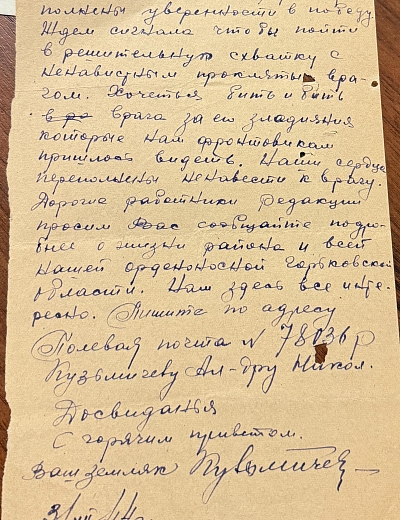 полнены уверенности в победу.
Ждем сигнала чтобы пойти
в решительную схватку с
ненавистным проклятым вра-
гом. Хочеться бить и бить
врага за его злодияния
которые нам фронтовикам
пришлось видеть. Наши сердца
переполнены ненавести к врагу.
Дорогие работники редакции
просим Вас сообщайте подро-
бнее о жизни района и всей
нашей орденоносной горьковской
области. Нам здесь все инте-
ресно. Пишите по адресу
Полевая почта N 78036 р
Кузьмичеву Ал-дру Никол.
Досвиданья
С горячим приветом.
Ваш земляк Кузьмичев